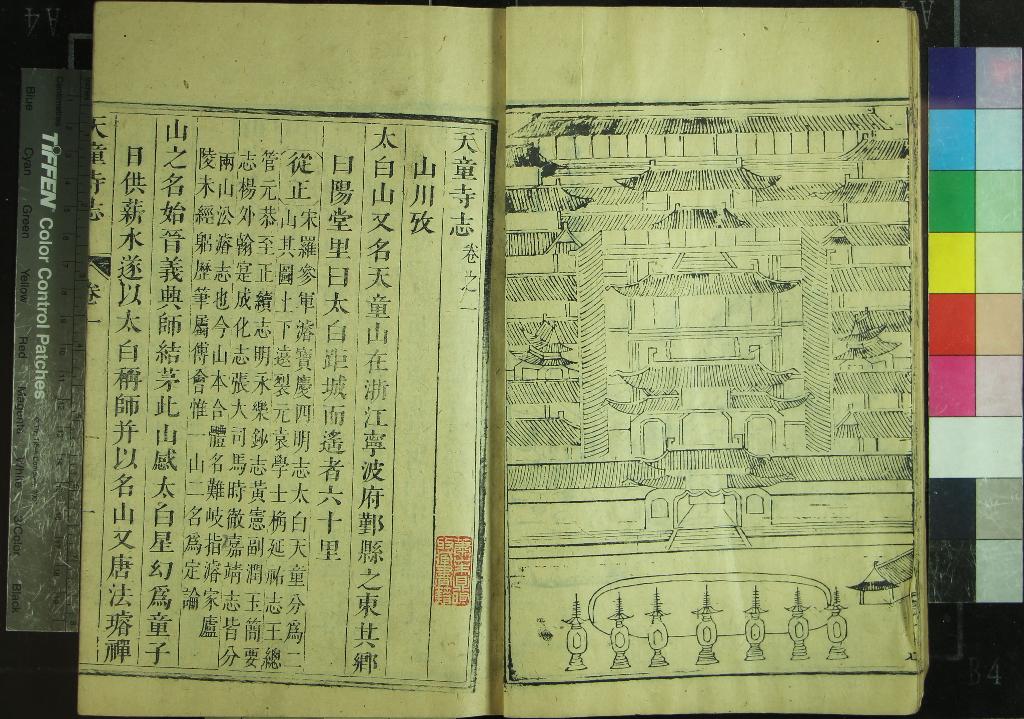 天童寺志卷之一
山川攷
太白山又名天童山在浙江寧波府鄞縣之東其鄉
曰陽堂里曰太白距城而遙者六十里
從正
宋羅參軍濬寶慶四明志太白天童分爲二
山其圖上下遠裂元袁學士桷延祐志王總
管元恭至正續志明永樂鈔志黃憲副潤玉簡要
志楊外翰寔成化志張大司馬時徹嘉靖志皆分
兩山公濬志也今山本合體名難岐指濬家廬
陵未經躬歷筆屬傅會惟一山二名爲定論
山之名始晉義興師結茅此山感太白星幻爲童子
日供薪水遂以太白稱師并以名山又唐法璿禪
天童寺志
卷一
一
TIFFEN Color Control Patches
Blue
Cyan
Green
Yellow
Red
Magenta
White
3/Color
Black
Centimetres
A4
B4